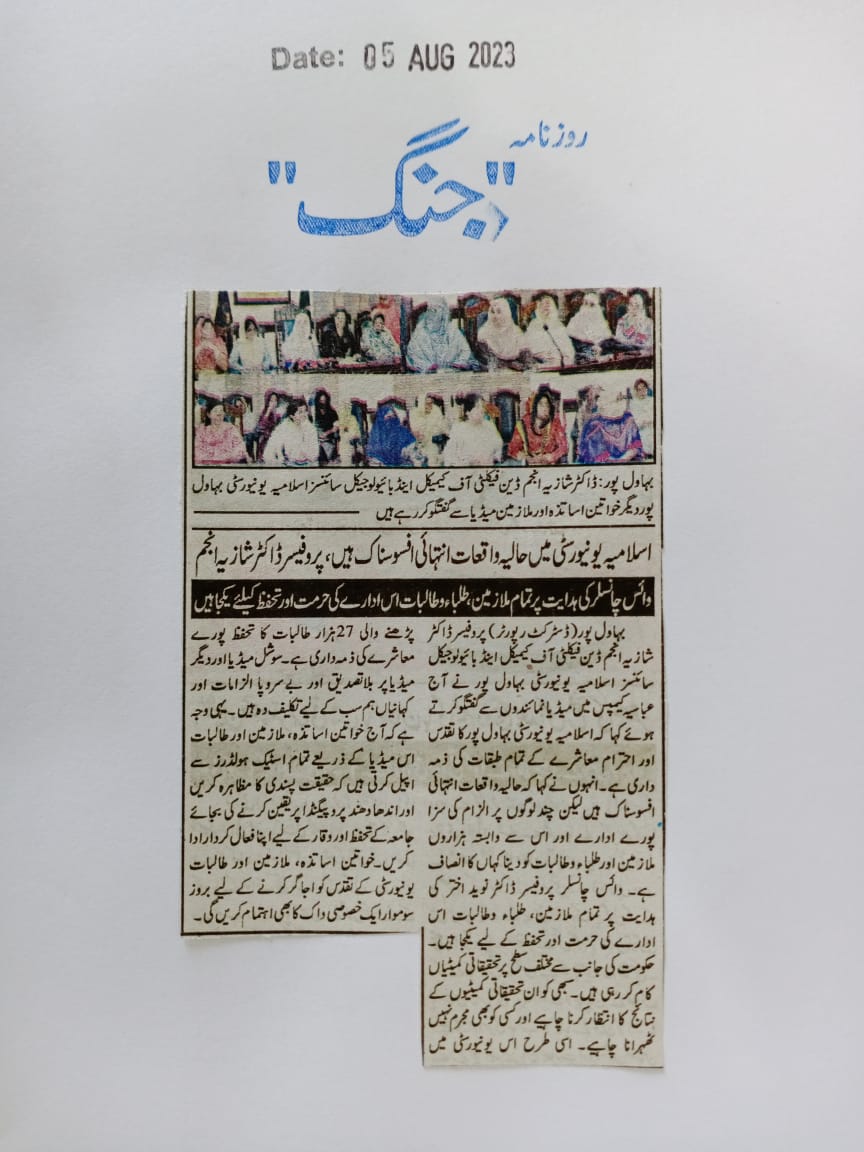 Date: 05 AUG 2023
روزنامہ
"جنگ"
بہاول پور: ڈاکٹر شازیہ انجم ڈین فیکلٹی آف کیمیکل اینڈ بائیولوجیکل سائنسز اسلامیہ یونیورسٹی بہاول
پور دیگر خواتین اساتذہ اور ملازمین میڈیا سے گفتگو کر رہے ہیں
اسلامیہ یونیورسٹی میں حالیہ واقعات انتہائی افسوسناک ہیں، پروفیسر ڈاکٹر شازیہ انجم
وائس چانسلر کی ہدایت پر تمام ملازمین، طلباء و طالبات اس ادارے کی حرمت اور تحفظ کیلئے یکجا ہیں
بہاول پور (ڈسٹرکٹ رپورٹر) پروفیسر ڈاکٹر
شازیہ انجم ڈین فیکلٹی آف کیمیکل اینڈ بائیولوجیکل
سائنسز اسلامیہ یونیورسٹی بہاول پور نے آج
عباسیہ کیمپس میں میڈیا نمائندوں سے گفتگو کرتے
ہوئے کہا کہ اسلامیہ یونیورسٹی بہاول پور کا تقدس
اور احترام معاشرے کے تمام طبقات کی ذمہ
داری ہے۔ انہوں نے کہا کہ حالیہ واقعات انتہائی
افسوسناک ہیں لیکن چند لوگوں پر الزام کی سزا
پورے ادارے اور اس سے وابستہ ہزاروں
ملازمین اور طلباء و طالبات کو دینا کہاں کا انصاف
ہے۔ وائس چانسلر پروفیسر ڈاکٹر نوید اختر کی
ہدایت پر تمام ملازمین، طلباء و طالبات اس
ادارے کی حرمت اور تحفظ کے لیے یکجا ہیں۔
حکومت کی جانب سے مختلف سطح پر تحقیقاتی کمیٹیاں
کام کر رہی ہیں۔ سبھی کو ان تحقیقاتی کمیٹیوں کے
نتائج کا انتظار کرنا چاہیے اور کسی کو بھی مجرم نہیں
ٹھہرانا چاہیے۔ اسی طرح اس یونیورسٹی میں
پڑھنے والی 27 ہزار طالبات کا تحفظ پورے
معاشرے کی ذمہ داری ہے۔ سوشل میڈیا اور دیگر
میڈیا پر بلا تصدیق اور بے سروپا الزامات اور
کہانیاں ہم سب کے لیے تکلیف دہ ہیں۔ یہی وجہ
ہے کہ آج خواتین اساتذہ، ملازمین اور طالبات
اس میڈیا کے ذریعے تمام اسٹیک ہولڈرز سے
اپیل کرتی ہیں کہ حقیقت پسندی کا مظاہرہ کریں
اور اندھا دھند پروپیگنڈا پر یقین کرنے کی بجائے
جامعہ کے تحفظ اور وقار کے لیے اپنا فعال کردار ادا
کریں۔ خواتین اساتذہ، ملازمین اور طالبات
یونیورسٹی کے تقدس کو اجاگر کرنے کے لیے بروز
سوموار ایک خصوصی واک کا بھی اہتمام کریں گی۔